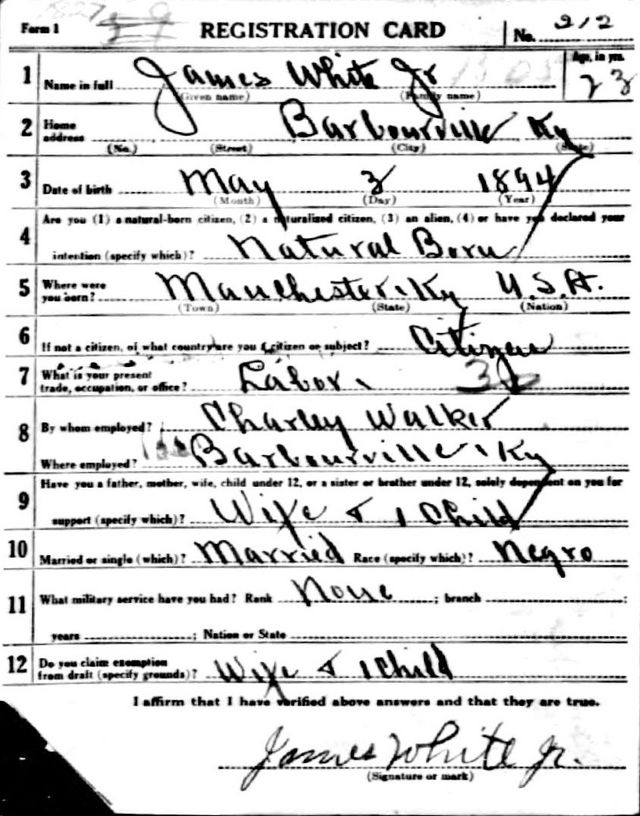 Form 1 REGISTRATION CARD No. 212
1 Name in full James White Jr Age, in yrs. 23
(Given name) (Family name)
2 Home address Barbourville Ky
(No.) (Street) (City) (State)
3 Date of birth May 3 1894
(Month) (Day) (Year)
4 Are you (1) a natural-born citizen, (2) a naturalized citizen, (3) an alien, (4) or have you declared your
intention (specify which)? Natural Born
5 Where were you born? Manchester, Ky U.S.A.
(Town) (State) (Nation)
6 If not a citizen, of what country are you a citizen or subject? Citizen
7 What is your present trade, occupation, or office? Labor,
8 By whom employed? Charley Walker
Where employed? Barbourville, Ky
9 Have you a father, mother, wife, child under 12, or a sister or brother under 12, solely dependent on you for
support (specify which)? Wife & 1 Child
10 Married or single (which)? Married Race (specify which)? Negro
11 What military service have you had? Rank None ; branch ;
years ; Nation or State
12 Do you claim exemption from draft (specify grounds)? Wife & 1 Child
I affirm that I have verified above answers and that they are true.
James White Jr.
(Signature or mark)